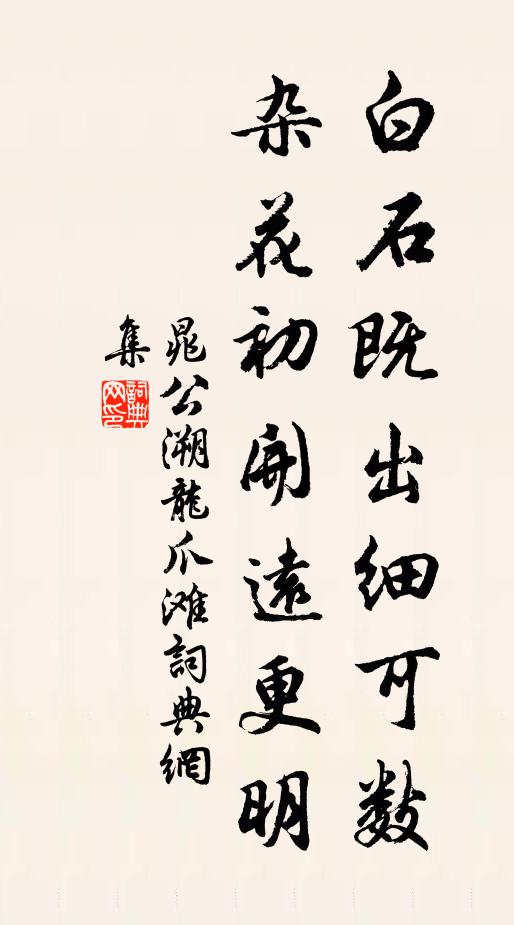 白石既出细可数
杂花初開遠更明
晁公溯龍爪滩詞典網
集
詞典網印